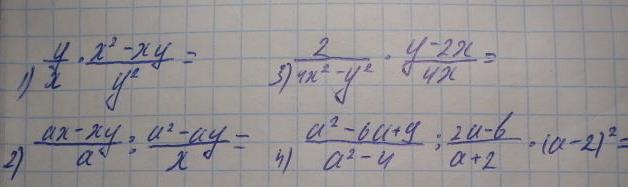 1) y/x · (x² - xy)/y² =
3) 2/(4x² - y²) · (y - 2x)/(4x) =
2) (ax - xy)/a : (a² - ay)/x =
4) (a² - 6a + 9)/(a² - 4) : (2a - 6)/(a + 2) · (a - 2)² =